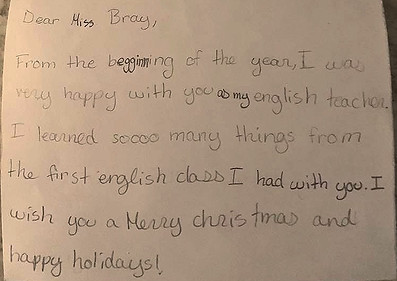 Dear Miss Bray,
From the begginning of the year, I was
very happy with you as my english teacher.
I learned soooo many things from
the first english class I had with you. I
wish you a Merry christmas and
happy holidays!